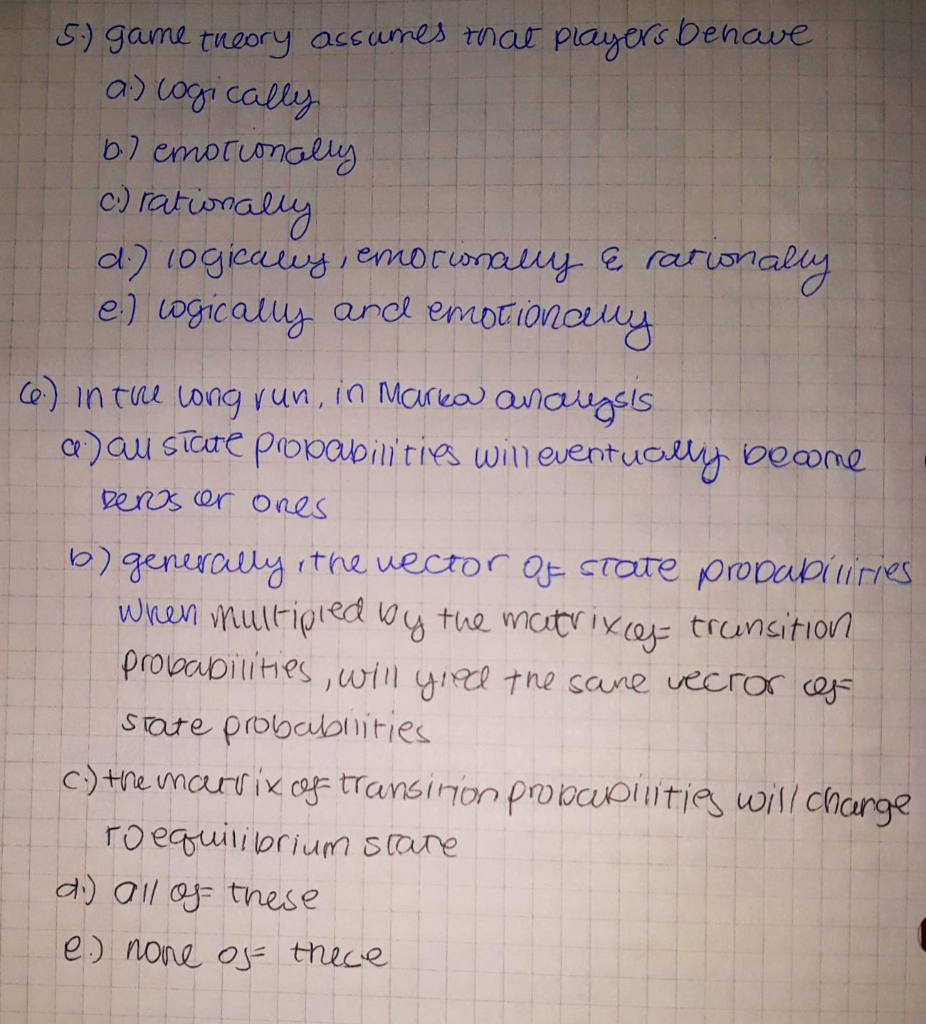 5.) game theory assumes that players behave
a.) logically
b.) emotionally
c.) rationally
d.) logically, emotionally & rationally
e.) logically and emotionally
6.) in the long run, in Markov analysis
a.) all state probabilities will eventually become
zeros or ones
b) generally, the vector of state probabilities
when multiplied by the matrix of transition
probabilities, will yied the same vector of
state probabilities
c.) the matrix of transition probabilities will change
to equilibrium state
d.) all of these
e.) none of thece